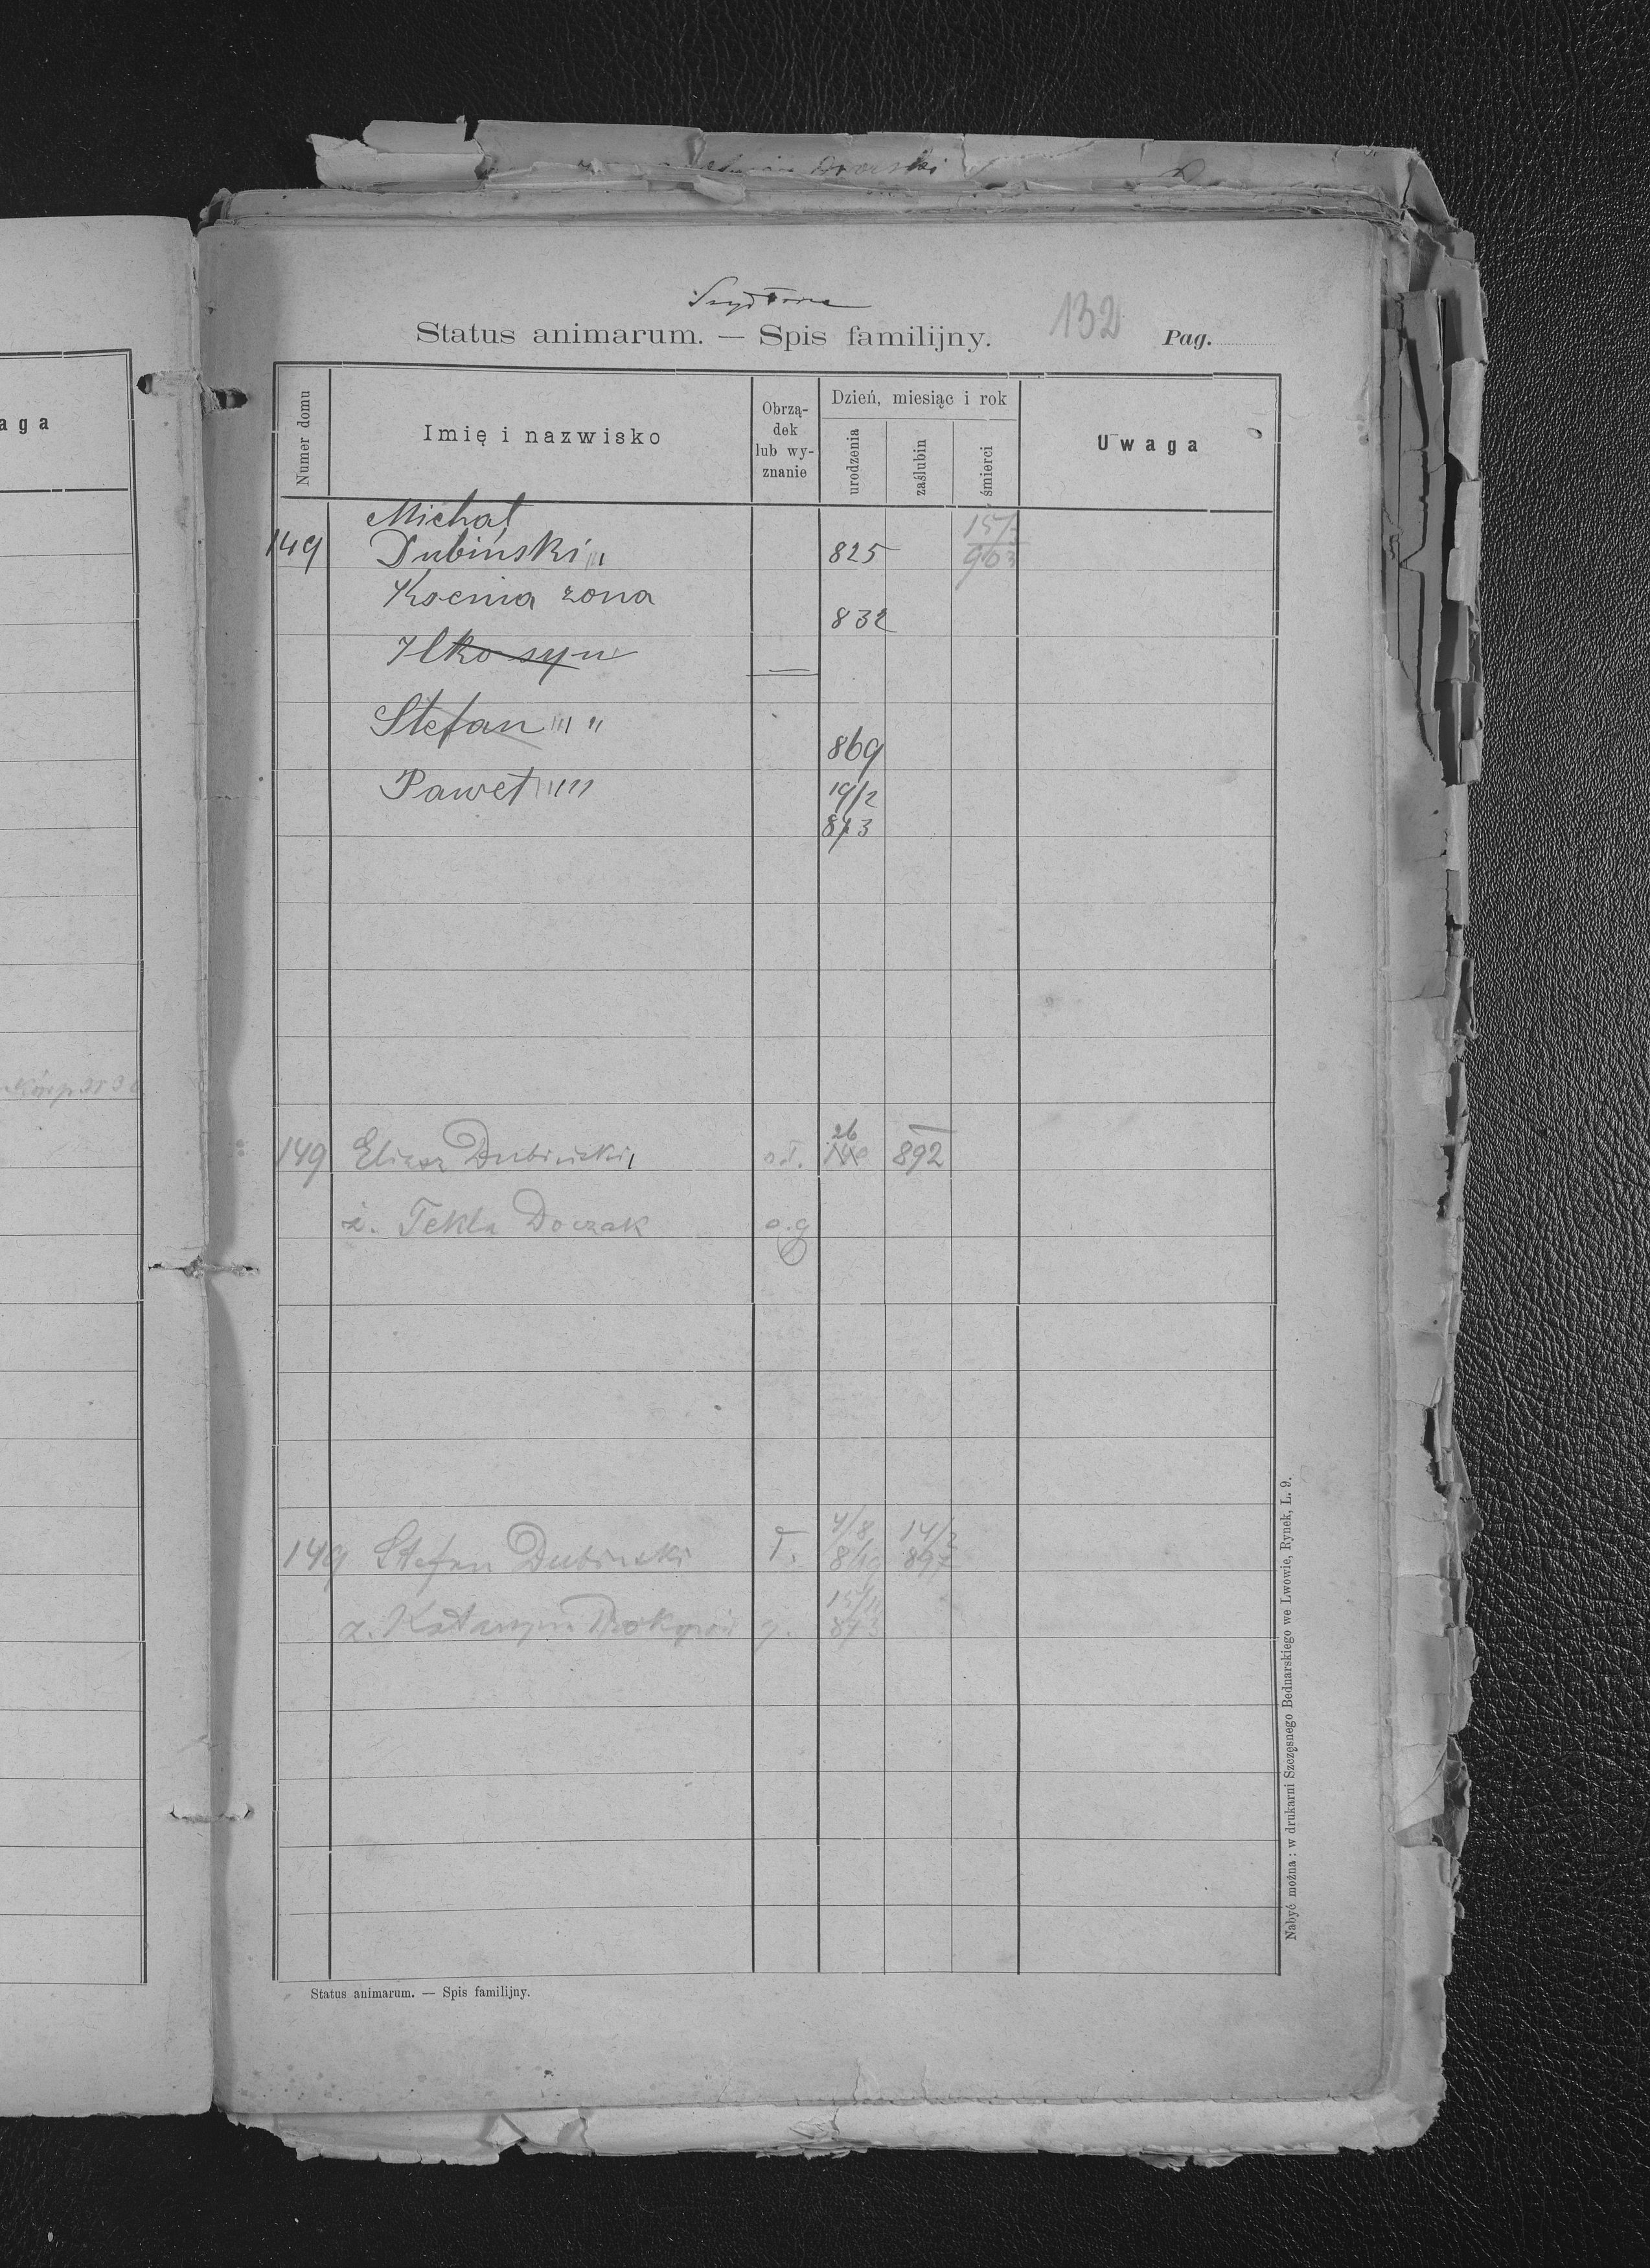 Dworski
aga
Szydłowce
Status animarum. — Spis familijny.
132
Pag.
Numer domu
Imię i nazwisko
Obrzą-
dek
lub wy-
znanie
Dzień, miesiąc i rok
urodzenia
zaślubin
śmierci
Uwaga
Michał
149 Dubiński 825 903
żona 832
Ilko syn
Stefan " 869
Paweł " " 19/2
873
26
149 Eliasz Dubiński o.ł. 892
ż. Tekla Doczak o.g
4/8 14/2
149 Stefan Dubinski ł. 869 897
15/11
ż. Katarzyna g. 873
Status animarum. — Spis familijny.
Nabyć można: w drukarni Szczęsnego Bednarskiego we Lwowie, Rynek, L. 9.